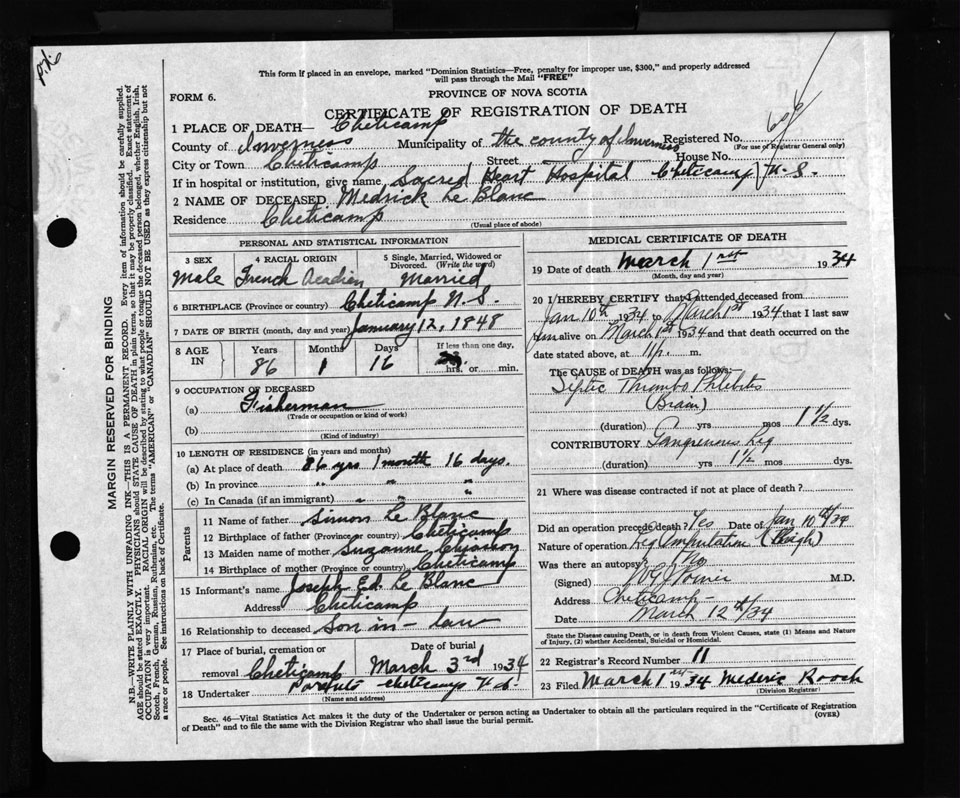 This form if placed in an envelope, marked "Dominion Statistics—Free, penalty for improper use, $300," and properly addressed
will pass through the Mail "FREE"
FORM 6.
PROVINCE OF NOVA SCOTIA
CERTIFICATE OF REGISTRATION OF DEATH
1 PLACE OF DEATH— Cheticamp
County of Inverness Municipality of the county of Inverness Registered No.
(For use of Registrar General only)
City or Town Cheticamp Street House No.
If in hospital or institution, give name Sacred Heart Hospital Cheticamp N.S.
2 NAME OF DECEASED Medrick Le Blanc
Residence Cheticamp
(Usual place of abode)
PERSONAL AND STATISTICAL INFORMATION
3 SEX Male
4 RACIAL ORIGIN French Acadien
5 Single, Married, Widowed or Divorced. (Write the word) Married
6 BIRTHPLACE (Province or country) Cheticamp N.S.
7 DATE OF BIRTH (month, day and year) January 12, 1848
8 AGE IN Years 86 Months 1 Days 16 If less than one day, hrs. or min.
9 OCCUPATION OF DECEASED
(a) Fisherman
(Trade or occupation or kind of work)
(b)
(Kind of industry)
10 LENGTH OF RESIDENCE (in years and months)
(a) At place of death 86 yrs 1 month 16 days.
(b) In province " " "
(c) In Canada (if an immigrant) " " "
Parents
11 Name of father Simon Le Blanc
12 Birthplace of father (Province or country) Cheticamp
13 Maiden name of mother Suzanne Chiasson
14 Birthplace of mother (Province or country) Cheticamp
15 Informant's name Joseph Ed. Le Blanc
Address Cheticamp
16 Relationship to deceased Son in-law
17 Place of burial, cremation or removal Cheticamp Date of burial March 3rd 1934
18 Undertaker Cheticamp N.S.
(Name and address)
MEDICAL CERTIFICATE OF DEATH
19 Date of death March 1st 1934
(Month, day and year)
20 I HEREBY CERTIFY that I attended deceased from
Jan 10th 1934 to March 1st 1934 that I last saw
him alive on March 1st 1934 and that death occurred on the
date stated above, at 11 p. m.
The CAUSE of DEATH was as follows:
Septic Thrombo Phlebitis
(Brain)
(duration) yrs mos 1 1/2 dys.
CONTRIBUTORY Gangrenous Leg
(duration) yrs 1 1/2 mos dys.
21 Where was disease contracted if not at place of death?
Did an operation precede death? Yes Date of Jan 10th/34
Nature of operation Leg Amputation (Thigh)
Was there an autopsy? No
(Signed) M.D.
Address Cheticamp
Date March 12th/34
State the Disease causing Death, or in death from Violent Causes, state (1) Means and Nature
of Injury, (2) whether Accidental, Suicidal or Homicidal.
22 Registrar's Record Number 11
23 Filed March 1st 1934 Mederic Roach
(Division Registrar)
Sec. 46—Vital Statistics Act makes it the duty of the Undertaker or person acting as Undertaker to obtain all the particulars required in the "Certificate of Registration
of Death" and to file the same with the Division Registrar who shall issue the burial permit.
(OVER)
MARGIN RESERVED FOR BINDING
N.B.—WRITE PLAINLY WITH UNFADING INK—THIS IS A PERMANENT RECORD. Every item of information should be carefully supplied.
AGE should be stated EXACTLY. PHYSICIANS should STATE CAUSE OF DEATH in plain terms, so that it may be properly classified. Exact statement of
OCCUPATION is very important. RACIAL ORIGIN will be described by stating to what people or tongue the deceased person belonged, whether English, Irish,
Scotch, French, German, Russian, Ruthenian, etc. The terms "AMERICAN" or "CANADIAN" SHOULD NOT BE USED as they express citizenship but not
a race or people. See instructions on back of Certificate.